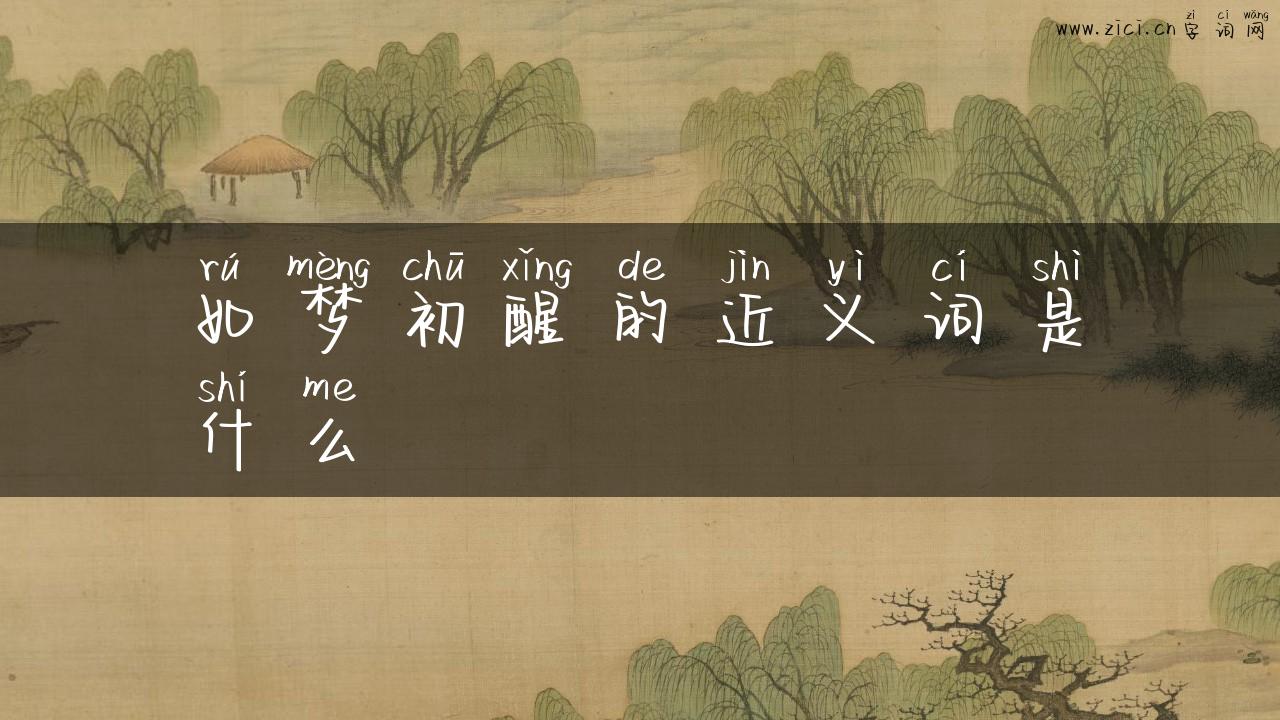 zì cí wǎng
www.zici.cn 字词网
rú mèng chū xǐng de jìn yì cí shì
如梦初醒的近义词是
shí me
什么